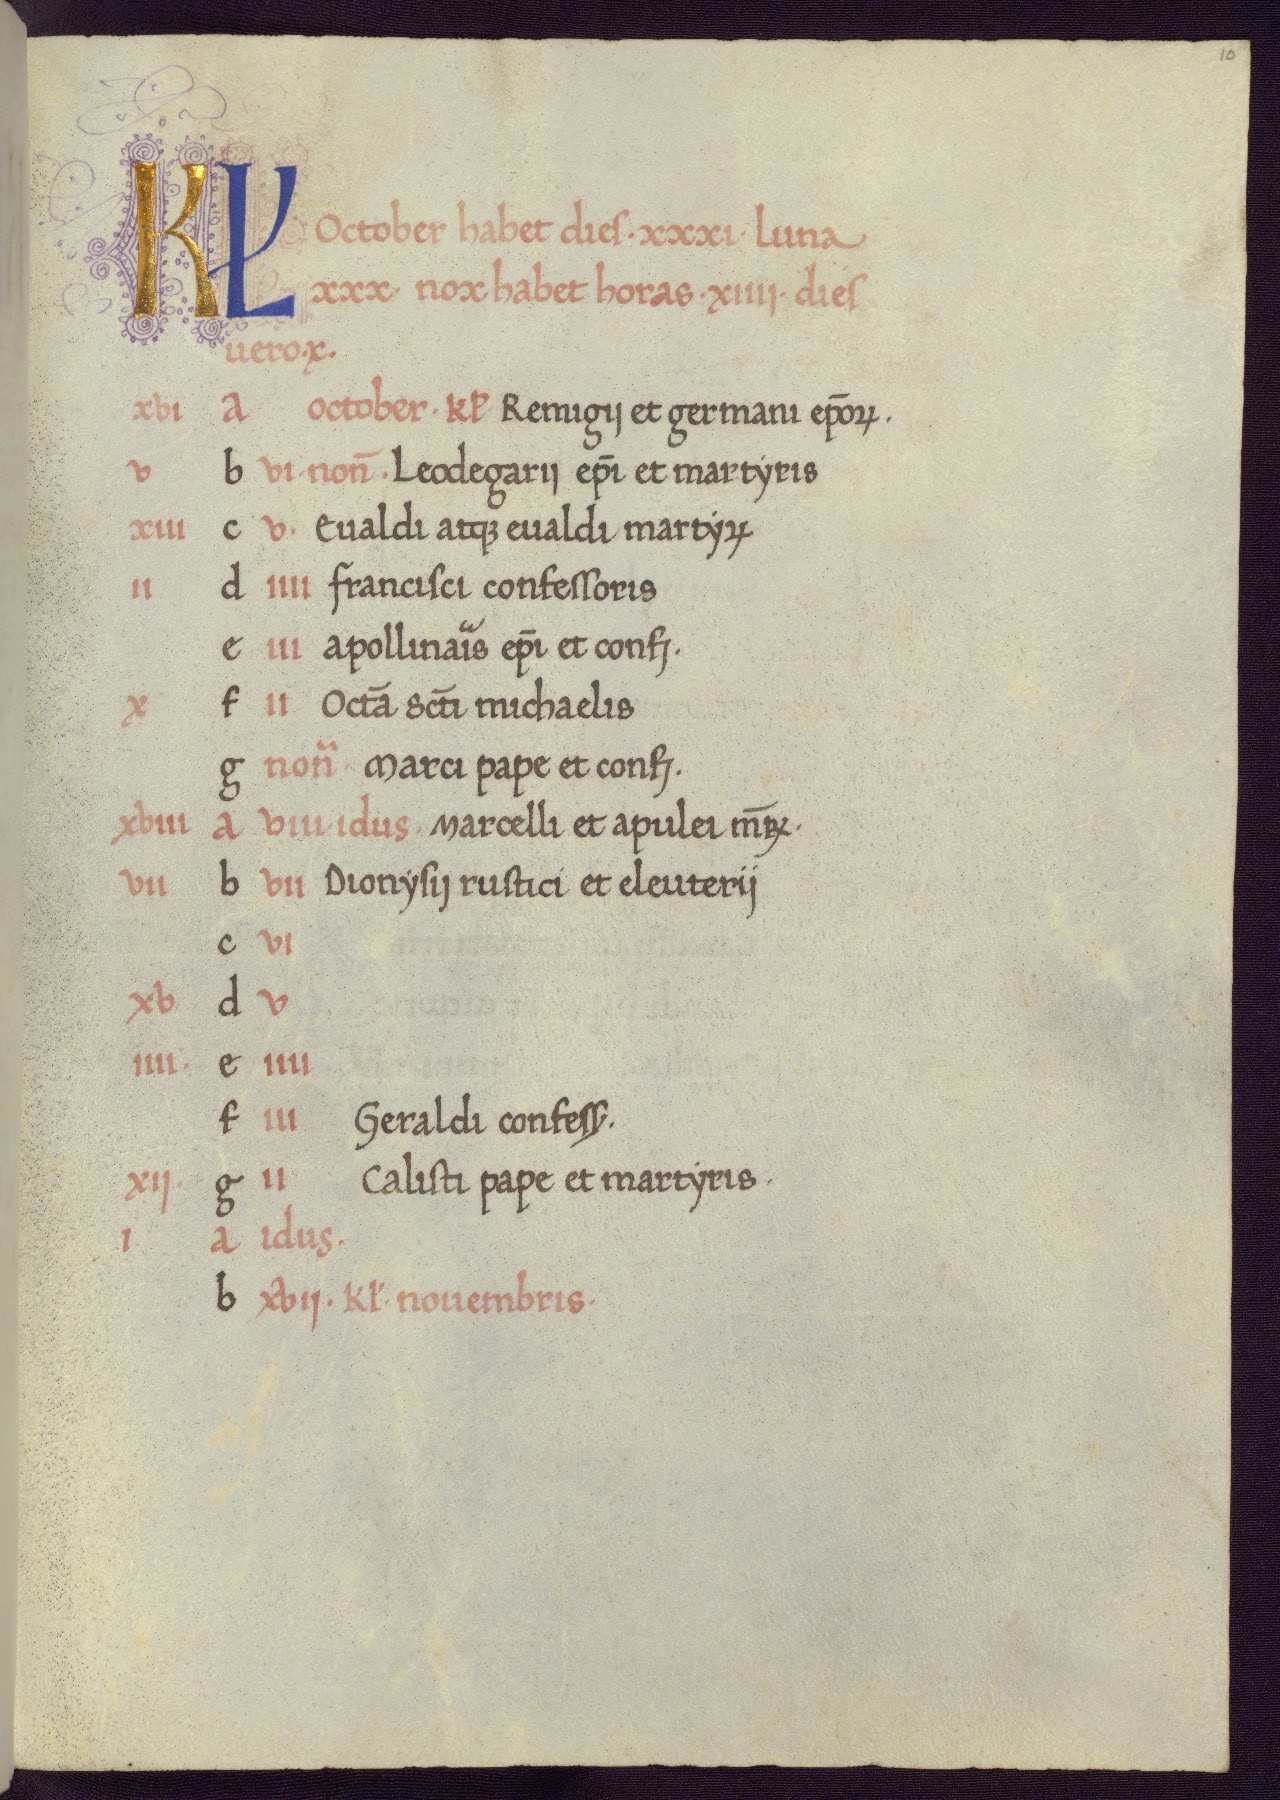 10
KL October habet dies · xxxi · Luna
xxx · nox habet horas · xiiii · dies
uero · x ·
xvi a october · kl̄ Remigij et germani ep̄oꝝ .
v b vi · non̄ . Leodegarij ep̄i et martẏris
xiii c v · Eualdi atqꝫ eualdi martẏꝝ
ii d iiii francisci confessoris
e iii apollinaͥs ep̄i et conf .
x f ii Octā sc̄ti michaelis
g non̄ Marci pape et conf .
xviii a viii idus · Marcelli et apulei m̄rꝝ .
vii b vii Dionẏsij rustici et eleuterij
c vi
xv d v
iiii · e iiii
f iii Geraldi confess .
xij · g ii Calisti pape et martẏris .
i a idus .
b xvij · kl̄ · nouembris ·